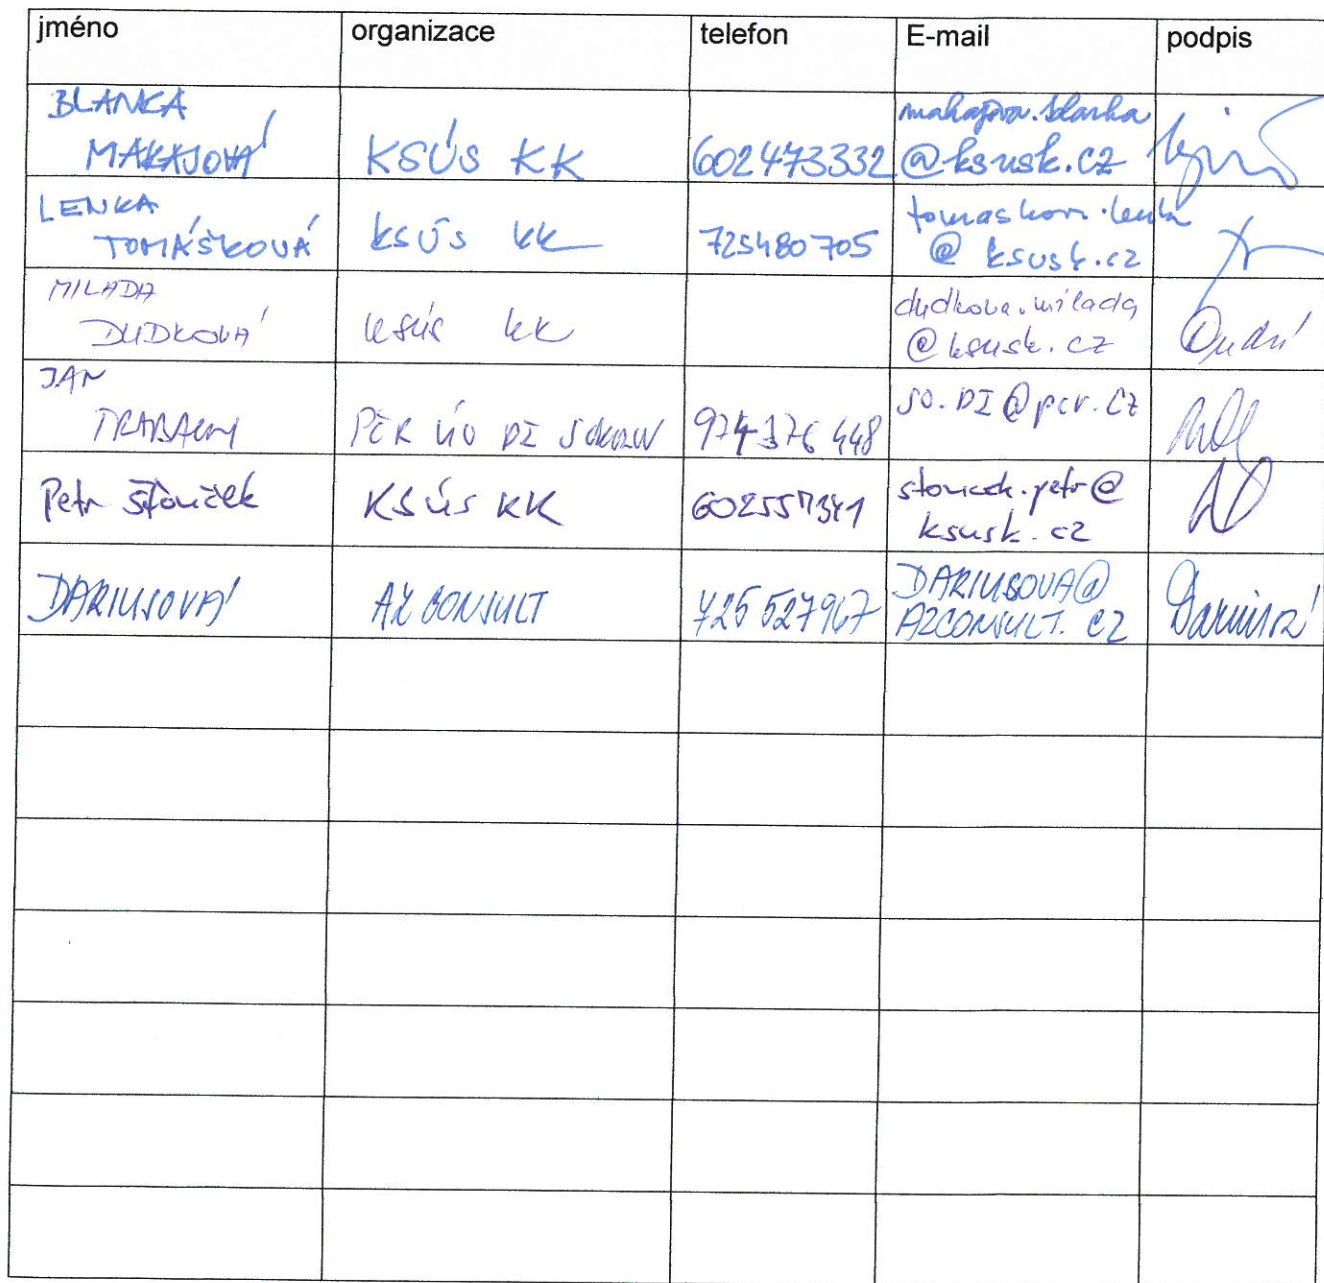 jméno organizace telefon E-mail podpis
BLANKA
MAKAJOVÁ KSÚS KK 602473332 makajova.blanka
@ksusk.cz
LENKA
TOMÁŠKOVÁ KSÚS KK 725480705 tomaskova.lenka
@ksusk.cz
MILADA
DUDKOVÁ KSÚS KK dudkova.milada
@ksusk.cz
JAN
PČR ÚO DI SOKOLOV 974376448 SO.DI@pcr.cz
Petr Šťovíček KSÚS KK 602557341 stovicek.petr@
ksusk.cz
DARIUSOVÁ AZ CONSULT 725527967 DARIUSOVA@
AZCONSULT.CZ